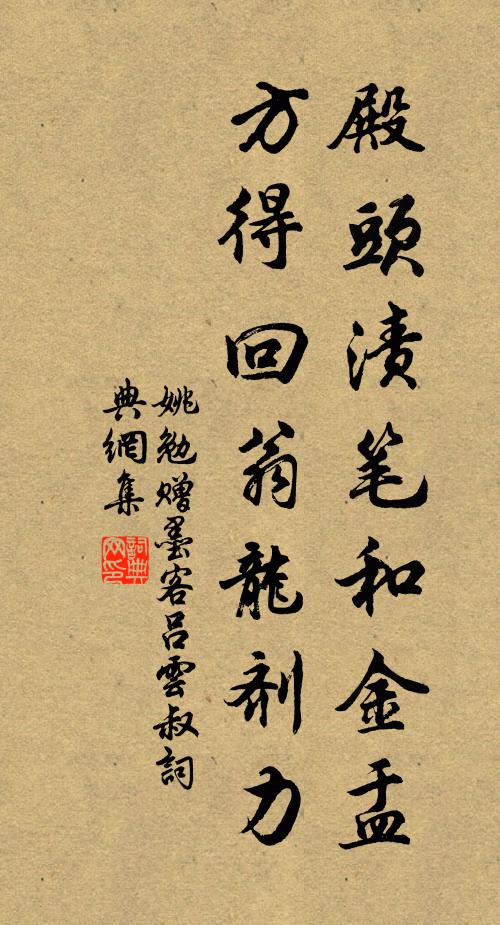 殿頭漬笔和金盂
方得回翁龍剤力
姚勉贈墨客呂雲叔詞
典網集
詞典
网印